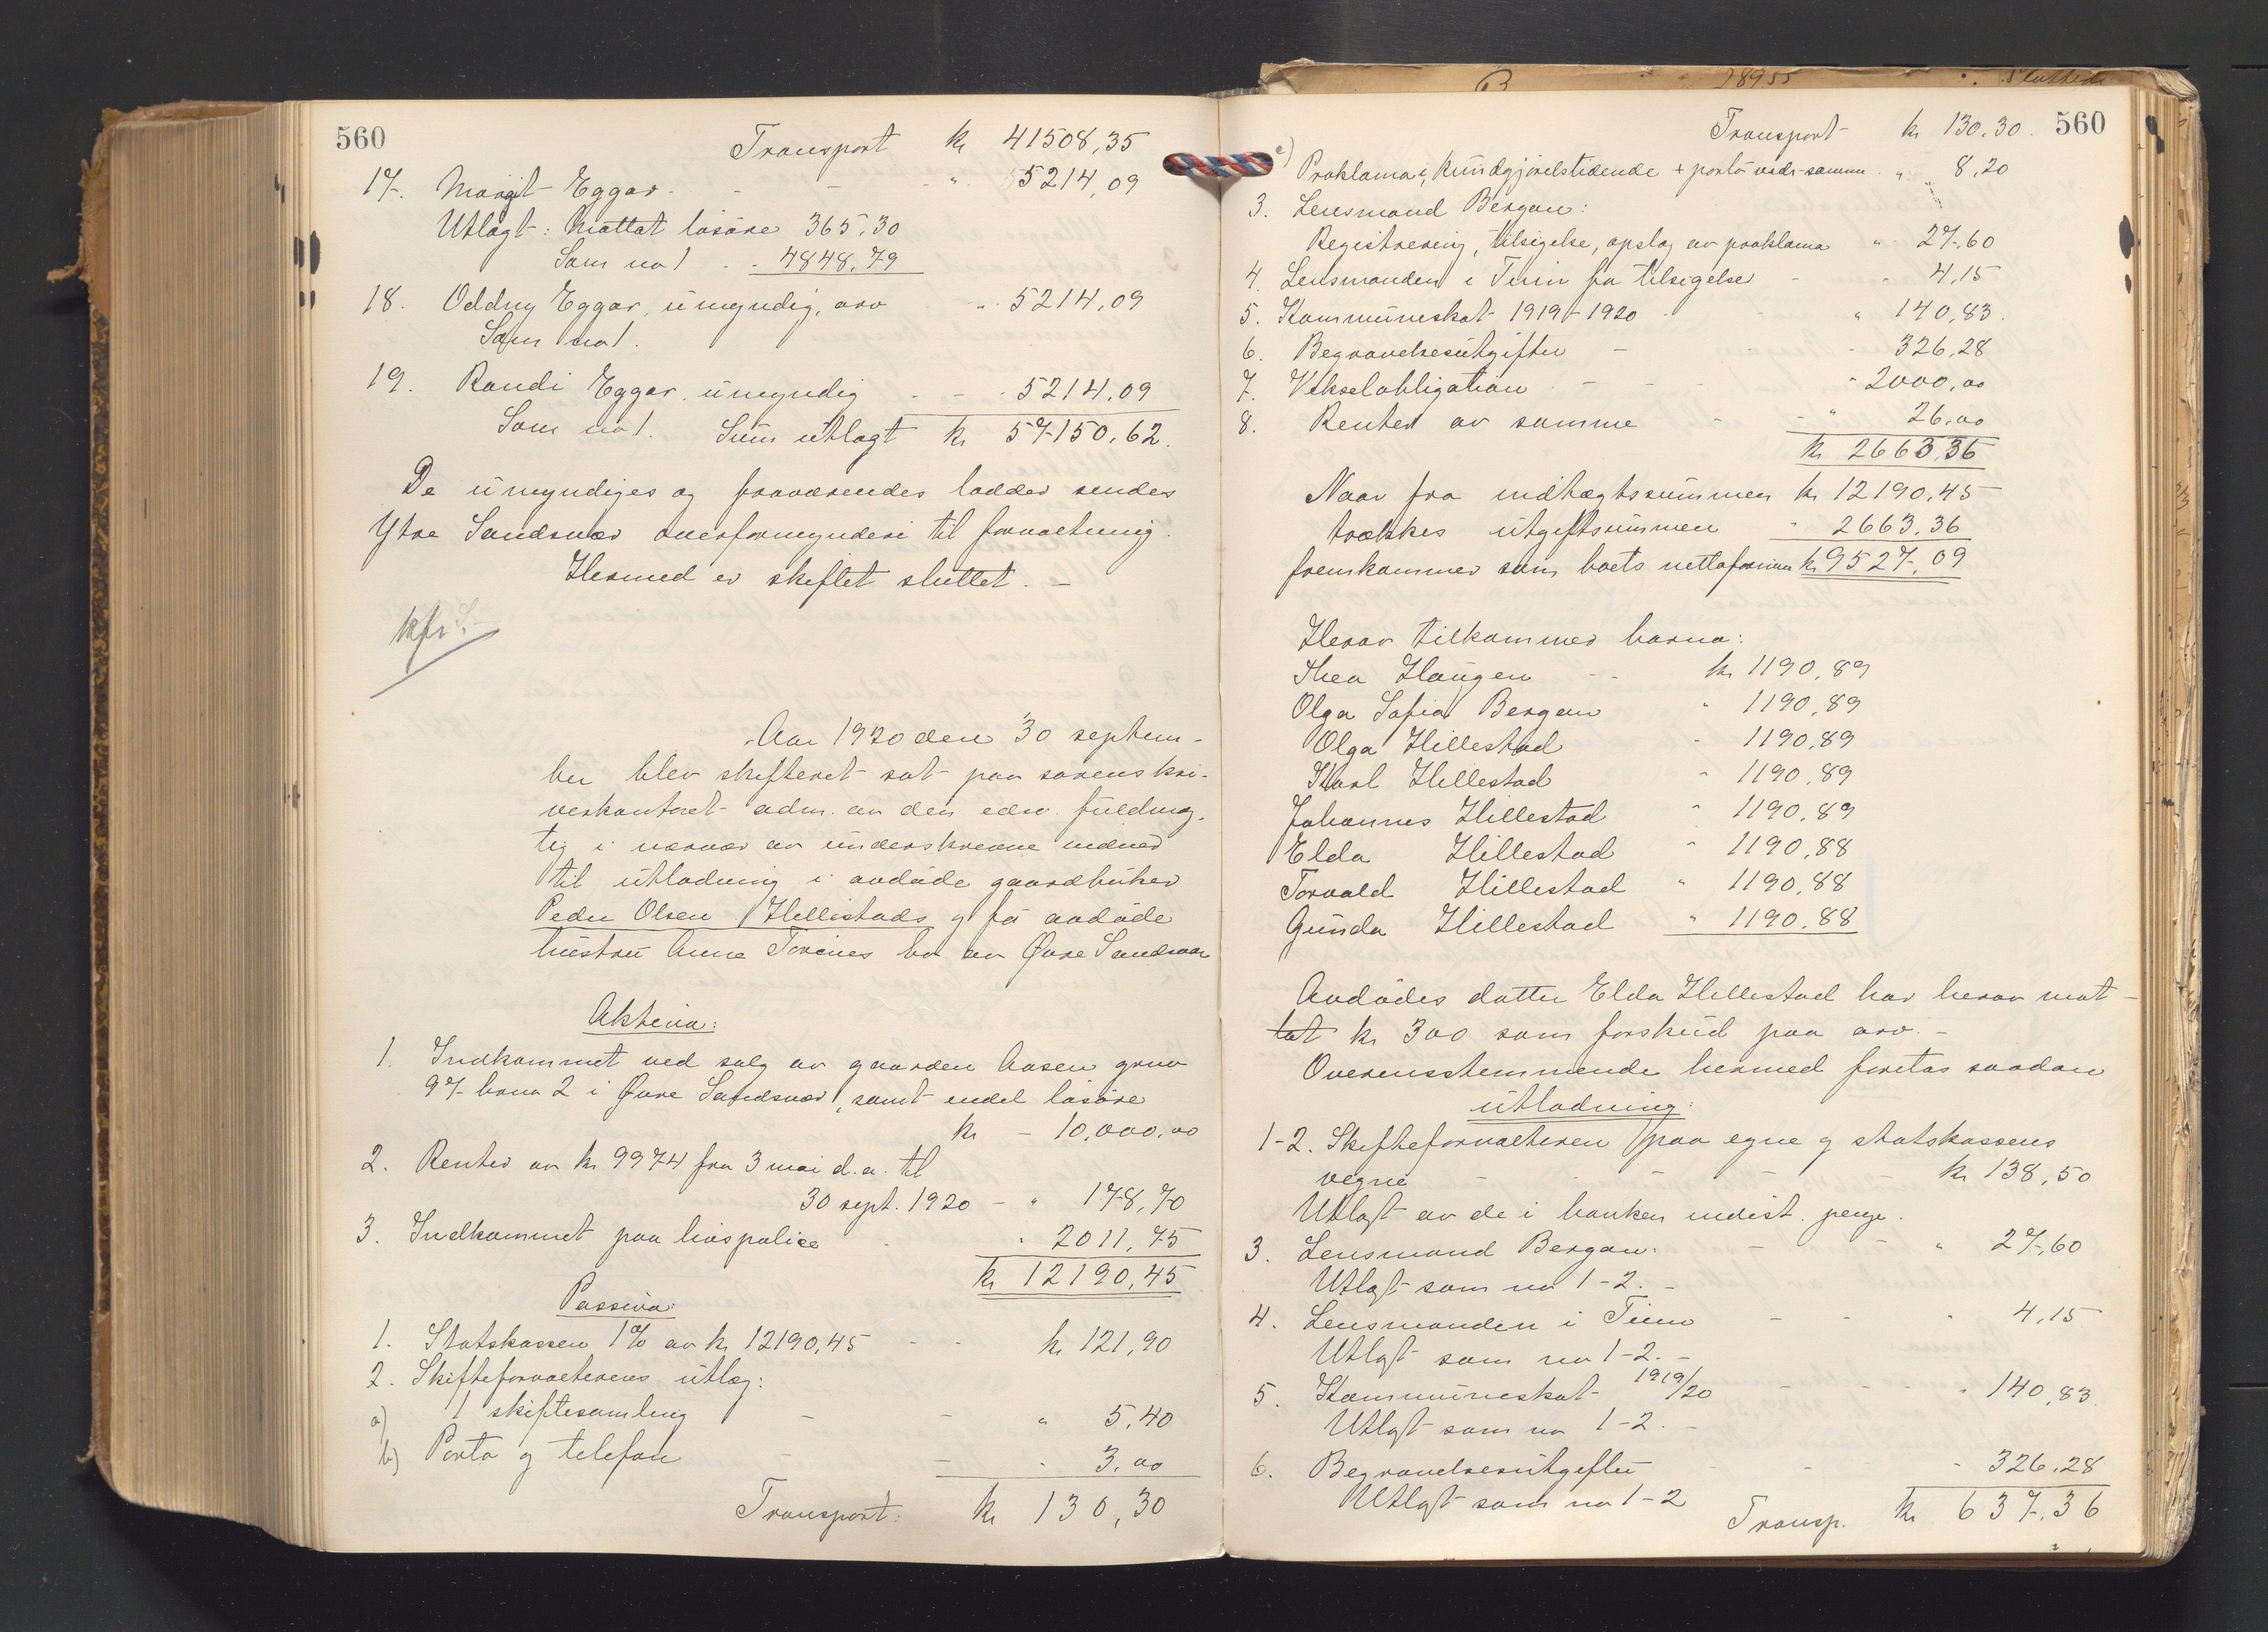 560
Transport kr 41508,35
17. Margit Eggar - - - " 5214,09
Utlagt: Mottat løsøre 365,30
Som no 1 - - 4848,79
18. Oddny Eggar, umyndig, arv " 5214,09
Som no 1.
19. Randi Eggar, umyndig - - - 5214,09
Som no 1. Sum utlagt kr 57150,62.
De umyndiges og fraværendes lodder sendes
Ytre Sandsvær overformynderi til forvaltning.
Hermed er skiftet sluttet. -
kfr.
Aar 1920 den 30 septem-
ber blev skifteret sat paa sorenskri-
verkontoret adm. av den edsv. fuldmæg.
tig i nærvær av underskrevne vidner
til utlodning i avdøde gaardbruker
Peder Olsen Hillestads og før avdøde
hustru Anne Torines bo av Øvre Sandsvær
Aktiva:
1. Indkommet ved salg av gaarden Aasen grno
97 brno 2 i Øvre Sandsvær, samt endel løsøre
kr - 10,000.00
2. Renter av kr 9974 fra 3 mai d.a. til
30 sept. 1920 - " 178,70
3. Indkommet paa livspolice - " 2011,75
kr 12190,45
Passiva:
1. Statskassen 1% av kr 12190,45 - - kr 121,90
2. Skifteforvalterens utlæg:
a) 1 skiftesamling - - " 5,40
b) Porto og telefon - - " 3,00
Transport: kr 130,30
560
Transport kr 130,30.
c) Proklama i Kundgjørelstidende + porto vedr. samme. " 8,20
3. Lensmand Bergan:
Registrering, tilsigelse, opslag av proklama " 27,60
4. Lensmanden i Tinn for tilsigelse - " 4,15
5. Kommuneskat 1919-1920 - - " 140,83.
6. Begravelsesutgifter - - - 326,28
7. Vekselobligation - - - " 2000,00
8. Renter av samme - - " 26,00
kr 2663,36
Naar fra indtægtssummen kr 12190,45
trækkes utgiftsummen " 2663,36
fremkommer som boets nettoformue kr 9527,09
Herav tilkommer barna:
Thea Haugen - - kr 1190,89
Olga Sofia Bergan " 1190,89
Olga Hillestad " 1190,89
Karl Hillestad " 1190,89
Johannes Hillestad " 1190,89
Elda Hillestad " 1190,88
Torvald Hillestad " 1190,88
Gunda Hillestad " 1190,88
Avdødes datter Elda Hillestad har herav mot-
tat kr 300 som forskud paa arv. -
Overensstemmende hermed foretas saadan
utlodning:
1-2. Skifteforvalteren paa egne og statskassens
vegne - - - - kr 138,50
Utlagt av de i banken indest. penge.
3. Lensmand Bergan: - - " 27,60
Utlagt som no 1-2. -
4. Lensmanden i Tinn - - " 4,15
Utlagt som no 1-2. -
5. Kommuneskat 1919/20 - - - " 140,83.
Utlagt som no 1-2. -
6. Begravelsesutgifter - - " 326,28
Utlagt som no 1-2
Transp. kr 637,36